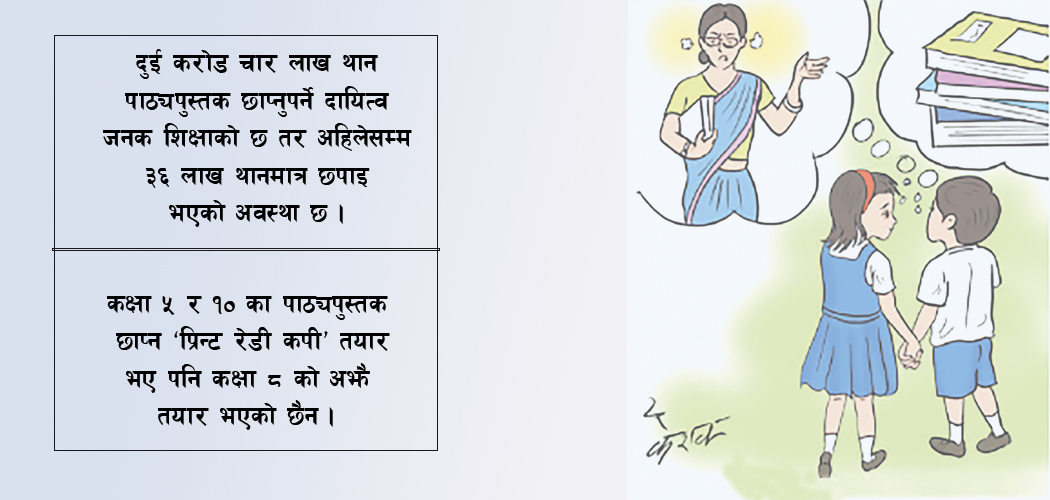 दुई करोड चार लाख थान
पाठ्यपुस्तक छाप्नुपर्ने दायित्व
जनक शिक्षाको छ तर अहिलेसम्म
३६ लाख थानमात्र छपाइ
भएको अवस्था छ ।
कक्षा ५ र १० का पाठ्यपुस्तक
छाप्न ‘प्रिन्ट रेडी कपी’ तयार
भए पनि कक्षा ८ को अझै
तयार भएको छैन ।